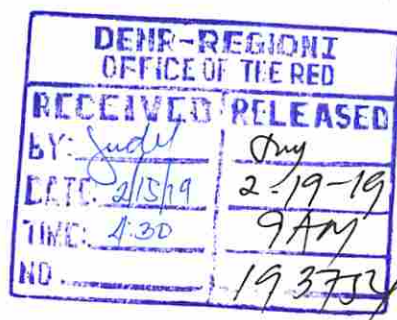 DENR-REGION I
OFFICE OF THE RED
RECEIVED RELEASED
BY:
DATE: 2/15/19 2-19-19
TIME: 4:30 9AM
NO